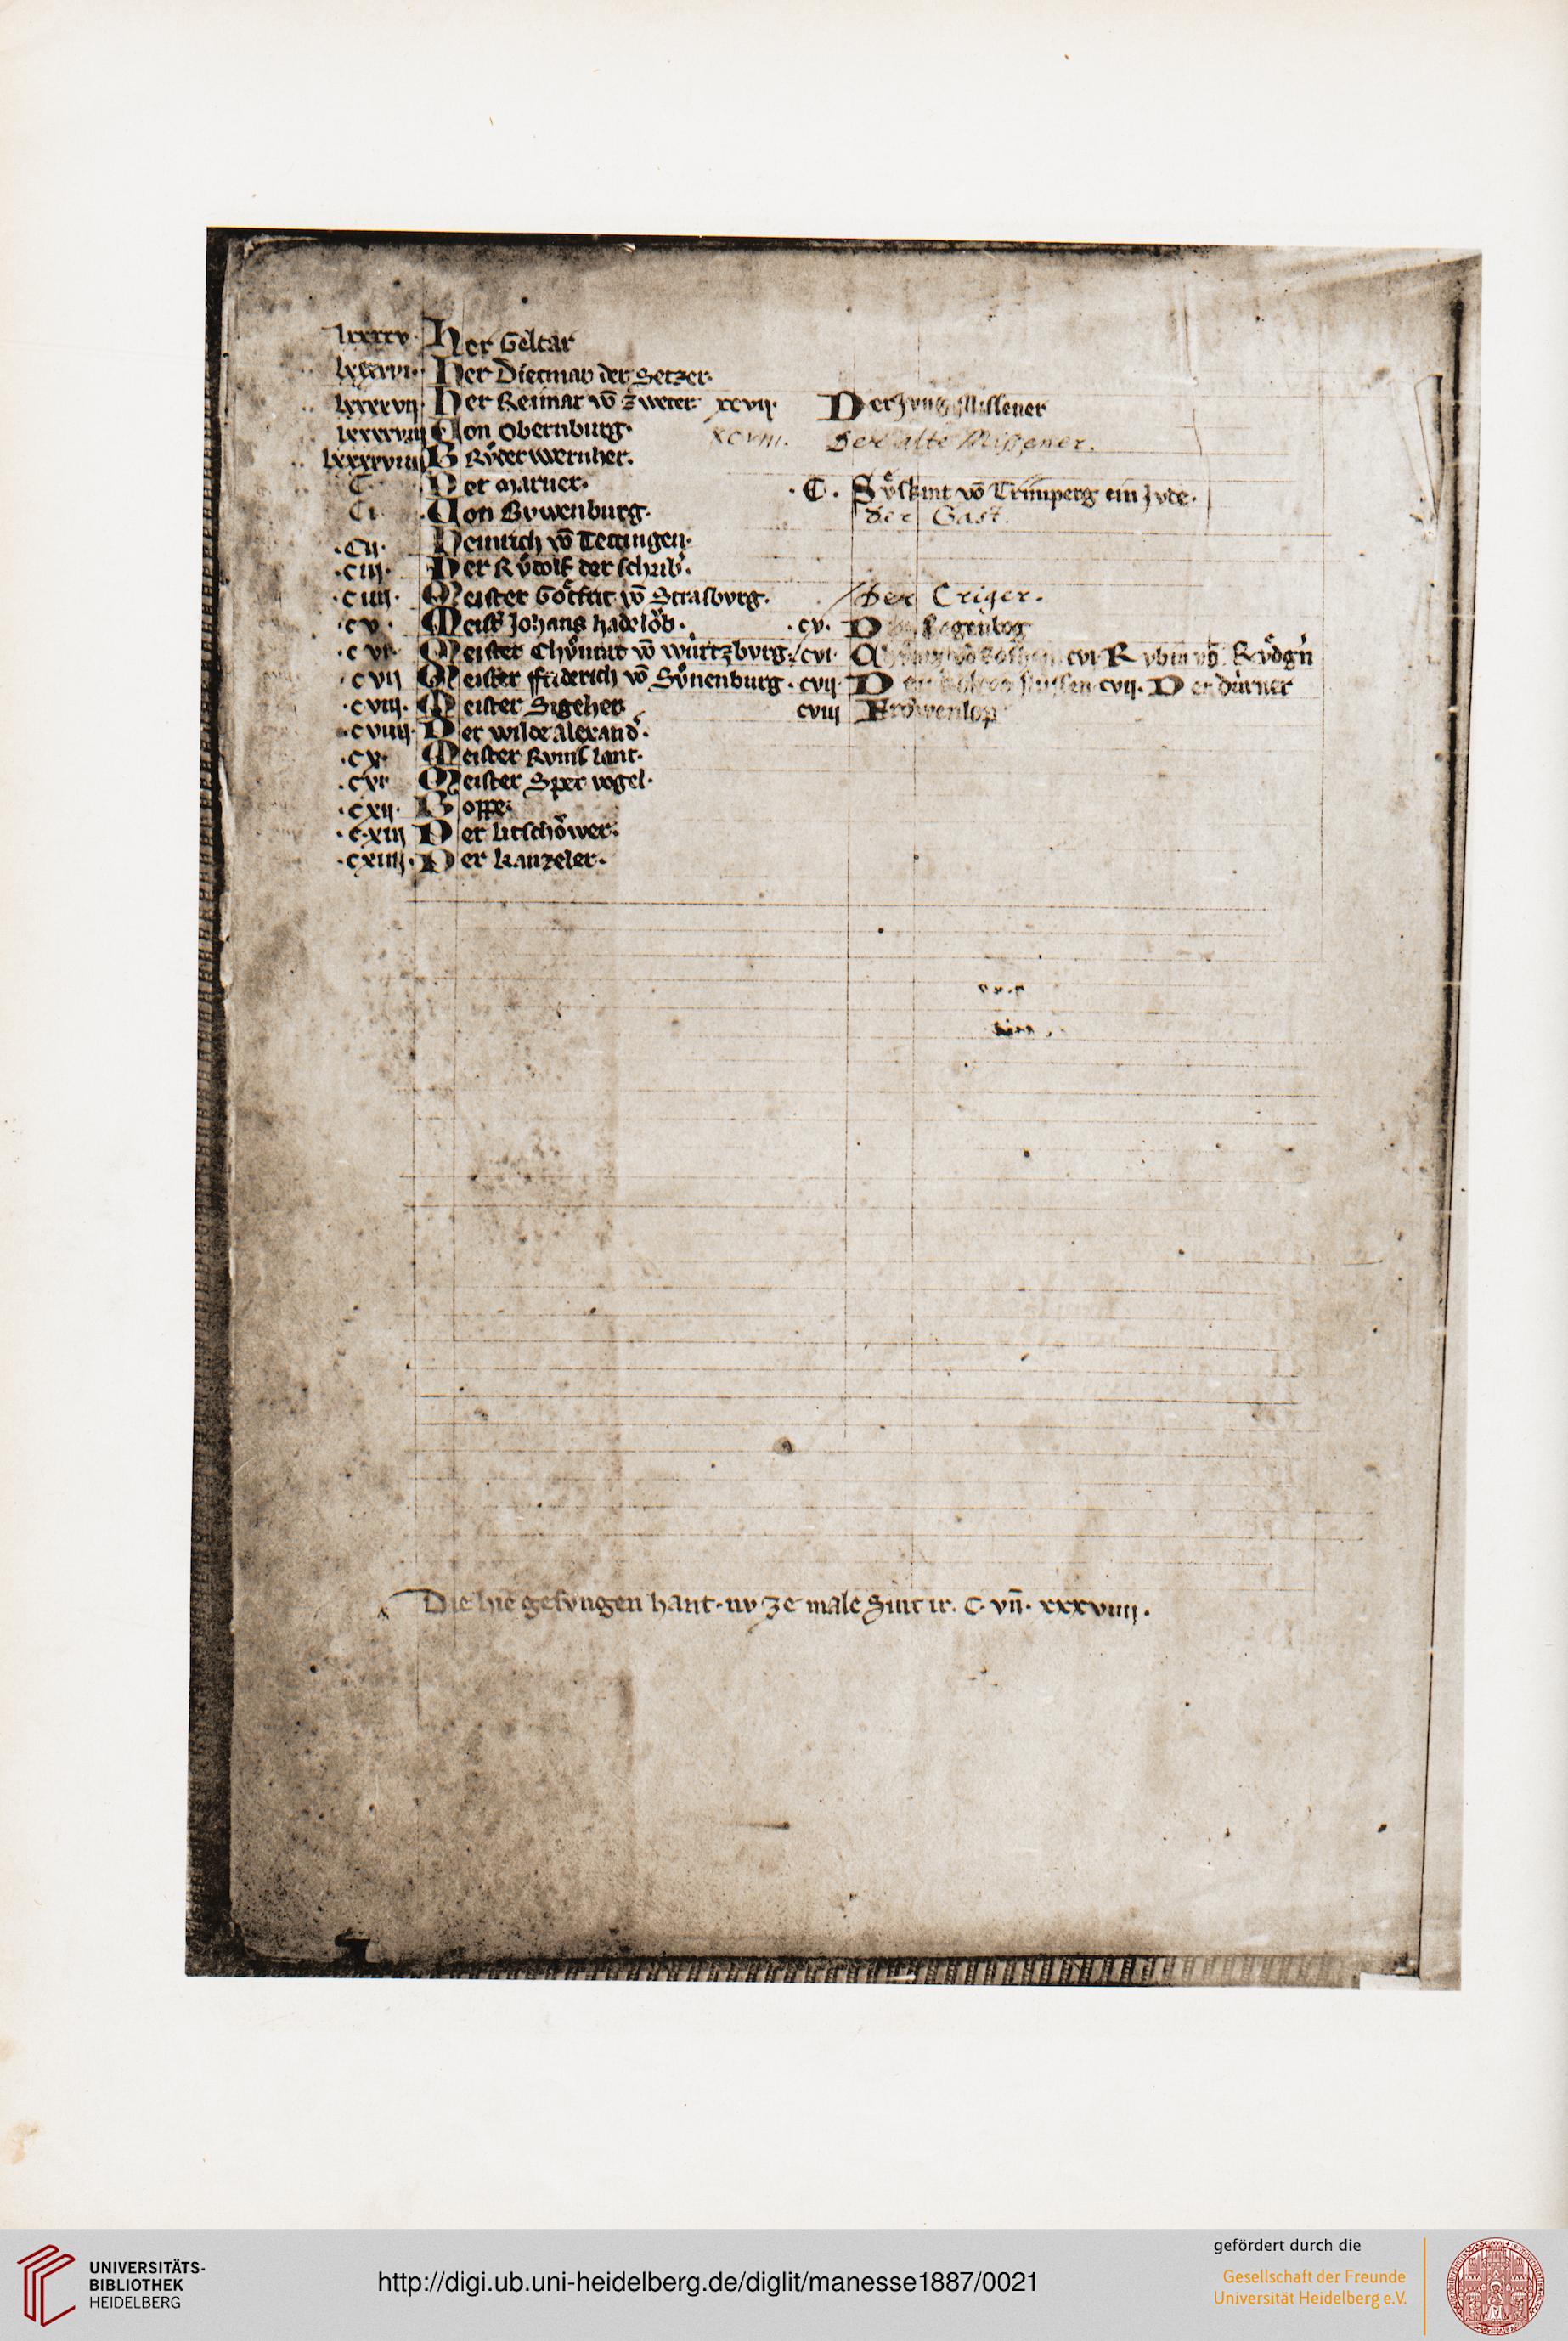 lxxxxv Her Geltar
lxxxxvi· Her Dietmar der Setzer·
lxxxxvij· Her Reimar vō Zweter· xcvij· Der Jvng Missener
lxxxxviij Von Obernburg· xcviij. Der alte Missener.
lxxxxviiij Brůder Wernher.
C Der Marner· ·C· Sůskint vō Trimperg ein Jvde·
Ci ·Von Bvwenburg· der Gast.
·Cij· Heinrich vō Tettingen·
·ciij· Her Růdolf der schrib·
·ciiij· Meister Götfrit vō Strasbvrg· Der Criger.
·cv· Meist Johans hadelöb· ·cv· Regenbog
·cvi· Meister Chůnrat vō wurtzbvrg· cvi· cvi· Rvbin vn̄ Růdgˀ
cvij Meister ffriderich vō Sůnenburg· cvij· D cvij· Der dúrner
·cviij· Meister Sigeher cviij Frowenlop
·cviiij· Der wilde Alexandˀ·
·cx· Meister Rvmslant·
·cxi· Meister Spervogel·
·cxij· Boppe·
·cxiij Der litschöwer·
·cxiiij· Der kanzeler·
Die hie gesvngen hant· nv ze male Sint ir. C· vn̄· xxxviiij·
UNIVERSITÄTS-
BIBLIOTHEK
HEIDELBERG
http://digi.ub.uni-heidelberg.de/diglit/manesse1887/0021
gefördert durch die
Gesellschaft der Freunde
Universität Heidelberg e.V.